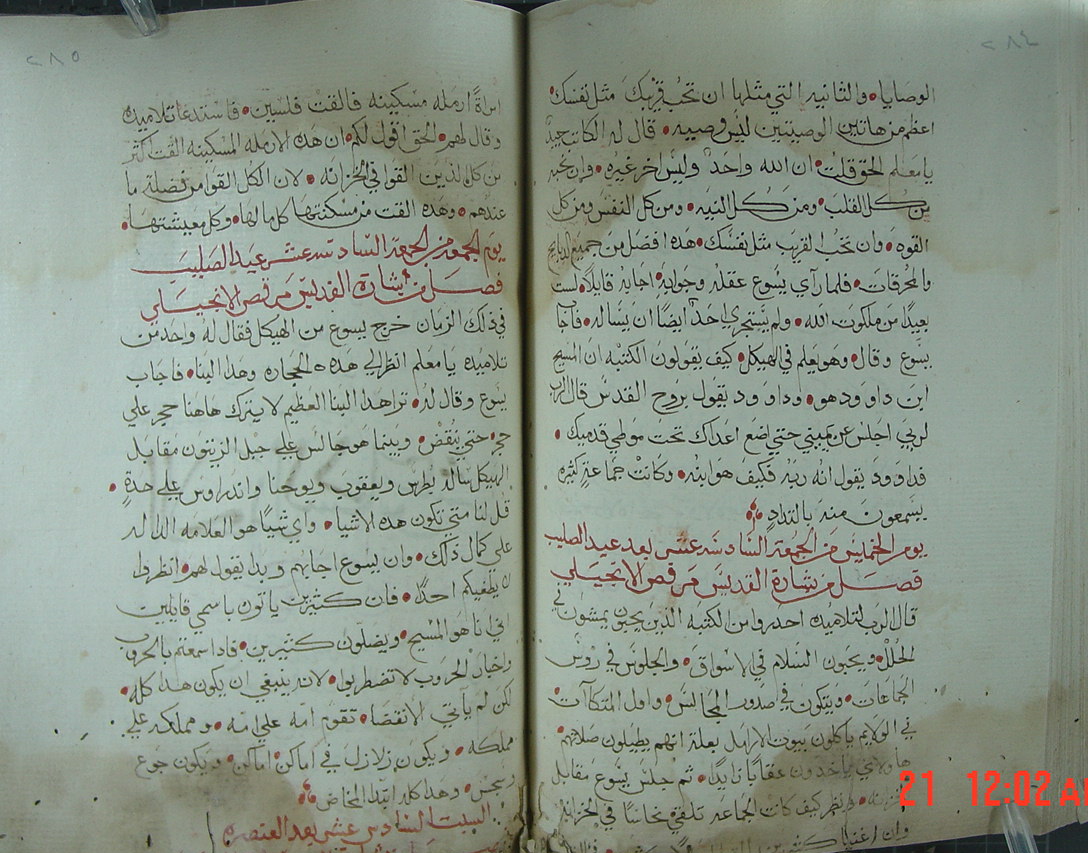 ٢٨٤
الوصايا والثانيه التي مثلها ان تحب قريبك مثل نفسك
اعظم من هاتين الوصيتين ليس وصيه قال له الكاتب جيدا
يا معلم الحق قلت ان الله واحد وليس اخر غيره وان تحبه
من كل القلب ومن كل النيه ومن كل النفس ومن كل
القوه وان تحب القريب مثل نفسك هده افضل من جميع الدبايح
والمحرقات فلما راي يسوع عقله وجوابه اجابه قايلا لست
بعيدا من ملكوت الله ولم يستجري احد ايضا ان يساله فاجاب
يسوع وقال وهو يعلم في الهيكل كيف يقولون الكتبه ان المسيح
ابن داوود هو وداوود يقول بروح القدس قال الرب
لربي اجلس عن يميني حتي اضع اعداك تحت موطي قدميك
فداوود يقول انه ربه فكيف هو ابنه وكانت جماعة كثيره
يسمعون منه بالتداد
يوم الخميس من الجمعة السادسه عشر بعد عيد الصليب
فصل من بشارة القديس مرقص الانجيلي
قال الرب لتلاميده احدروا من الكتبه الذين يحبون يمشون في
الحلل ويحبون السلام في الاسواق والجلوس في روس
الجماعات ويتكون في صدور المجالس واول المتكات
في الولايم ياكلون بيوت الارامل بعلة انهم يطيلون صلاتهم
هاولاي ياخدون عقابا زايدا ثم جلس يسوع مقابل
ونظر كيف كانت الجماعه تلقي نحاسا في الخزانه
وان اغنيا كثيرين
٢٨٥
امراة ارمله مسكينه فالقت فلسين فاستدعا تلاميده
وقال لهم الحق اقول لكم ان هده الارمله المسكينه القت اكثر
من كل الذين القوا في الخزانه لان الكل القوا من فضلة ما
عندهم وهده القت من مسكنتها كل ما لها وكل معيشتها
يوم الجمعة السادسه عشر عيد الصليب
فصل من بشارة القديس مرقص الانجيلي
في ذلك الزمان خرج يسوع من الهيكل فقال له واحد من
تلاميده يا معلم انظر الي هده الحجاره وهدا البنا فاجاب
يسوع وقال له ترا هدا البنا العظيم لا يترك هاهنا حجر علي
حجر حتي ينقض وبينما هو جالس علي جبل الزيتون مقابل
الهيكل ساله بطرس ويعقوب ويوحنا واندراوس علي حدة
قل لنا متي تكون هده الاشيا واي شيا هو العلامه الداله
علي كمال ذلك وان يسوع اجابهم وبدا يقول لهم انظروا
لا يطغيكم احدا فان كثيرين ياتون باسمي قايلين
اني انا هو المسيح ويضلون كثيرين فادا سمعتم بالحروب
واخبار الحروب لا تضطربوا لانه ينبغي ان يكون هدا كله
لكن لم ياتي الانقضا تقوم امه علي امه ومملكه علي
مملكه ويكون زلازل في اماكن اماكن ويكون جوع
وسجس وهدا كله ابتدا المخاض
السبت السادس عشر بعد العنصره
21 12:02 A